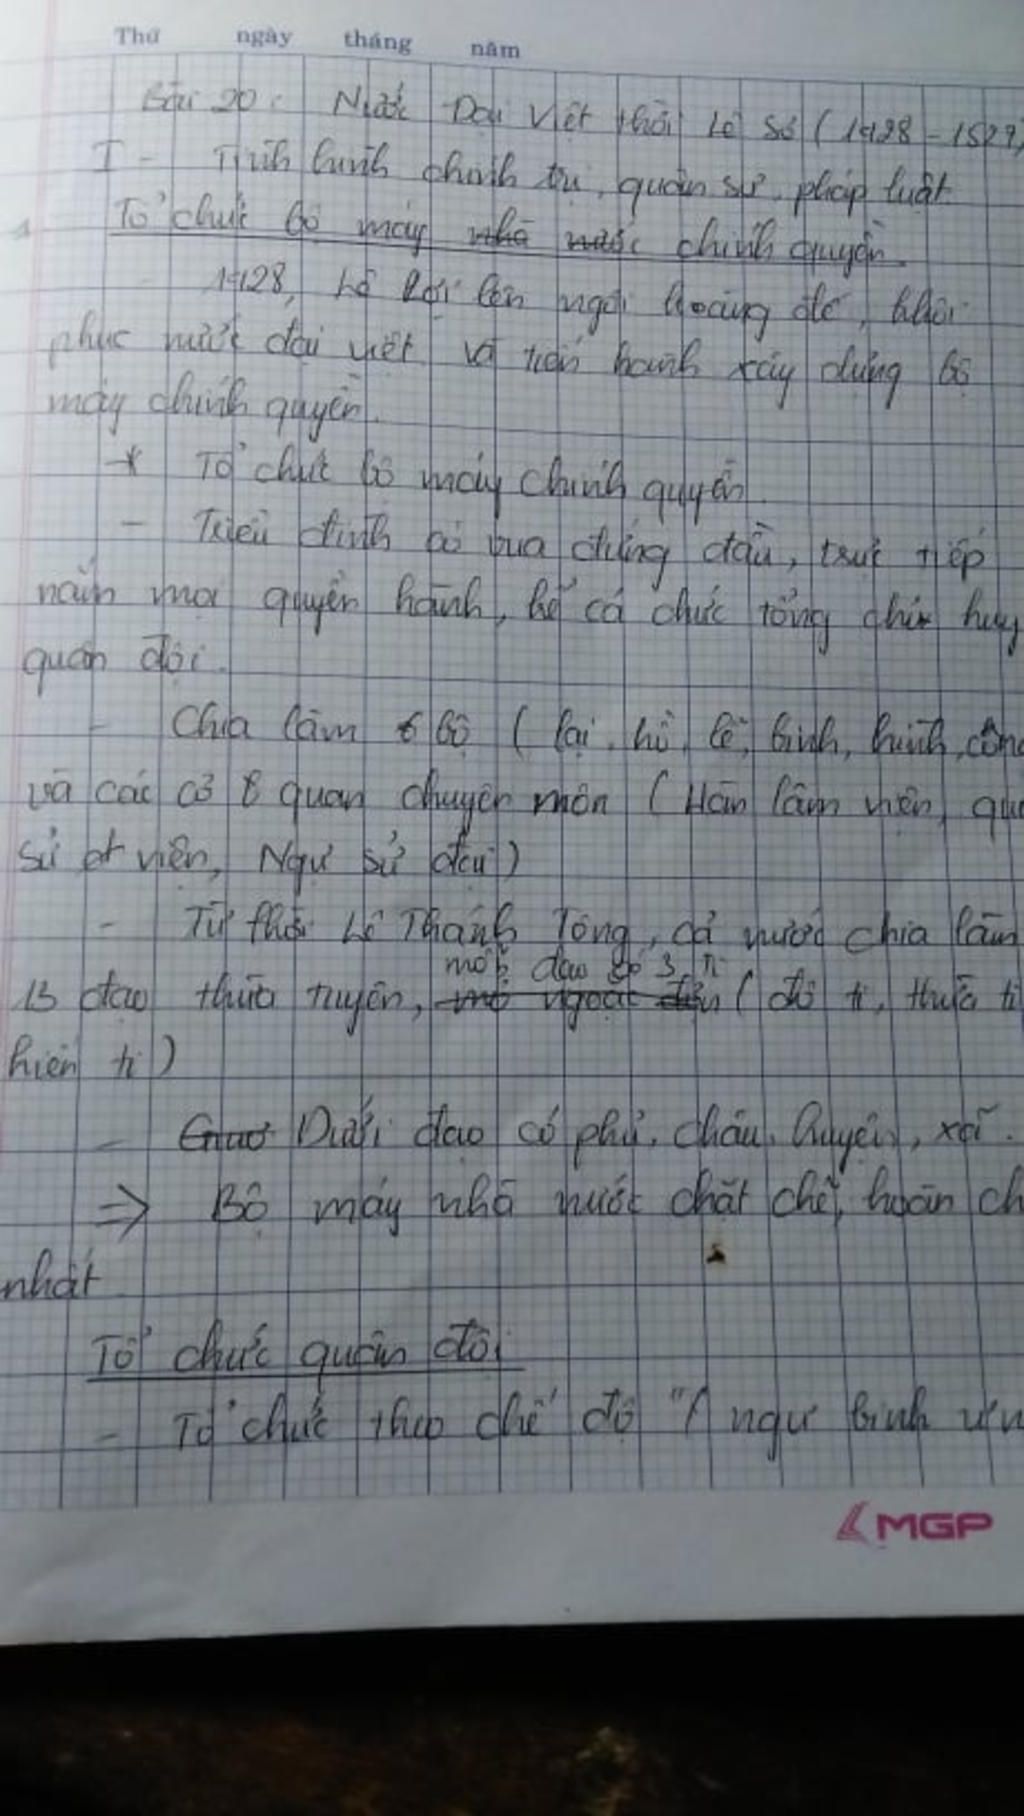 Thứ ngày tháng năm
Bài 20: Nước Đại Việt thời Lê Sơ (1428 - 1527)
I - Tình hình chính trị, quân sự, pháp luật
1 Tổ chức bộ máy nhà nước chính quyền.
- 1428, Lê Lợi lên ngôi Hoàng đế, khôi
phục nước đại việt và tiến hành xây dựng bộ
máy chính quyền.
* Tổ chức bộ máy chính quyền.
- Triều đình có vua đứng đầu, trực tiếp
nắm mọi quyền hành, kể cả chức tổng chỉ huy
quân đội.
- Chia làm 6 bộ (lại, hộ, lễ, binh, hình, công
và các cơ quan chuyên môn (Hàn lâm viện, quốc
sử viện, Ngự sử đài)
- Từ thời Lê Thánh Tông, cả nước chia làm
một đạo có 3 ti
13 đạo thừa tuyên, (đô ti, thừa ti
hiến ti)
- Dưới đạo có phủ, châu, huyện, xã.
=> Bộ máy nhà nước chặt chẽ, hoàn ch
nhất
Tổ chức quân đội
- Tổ chức theo chế độ "ngụ binh ư n
MGP